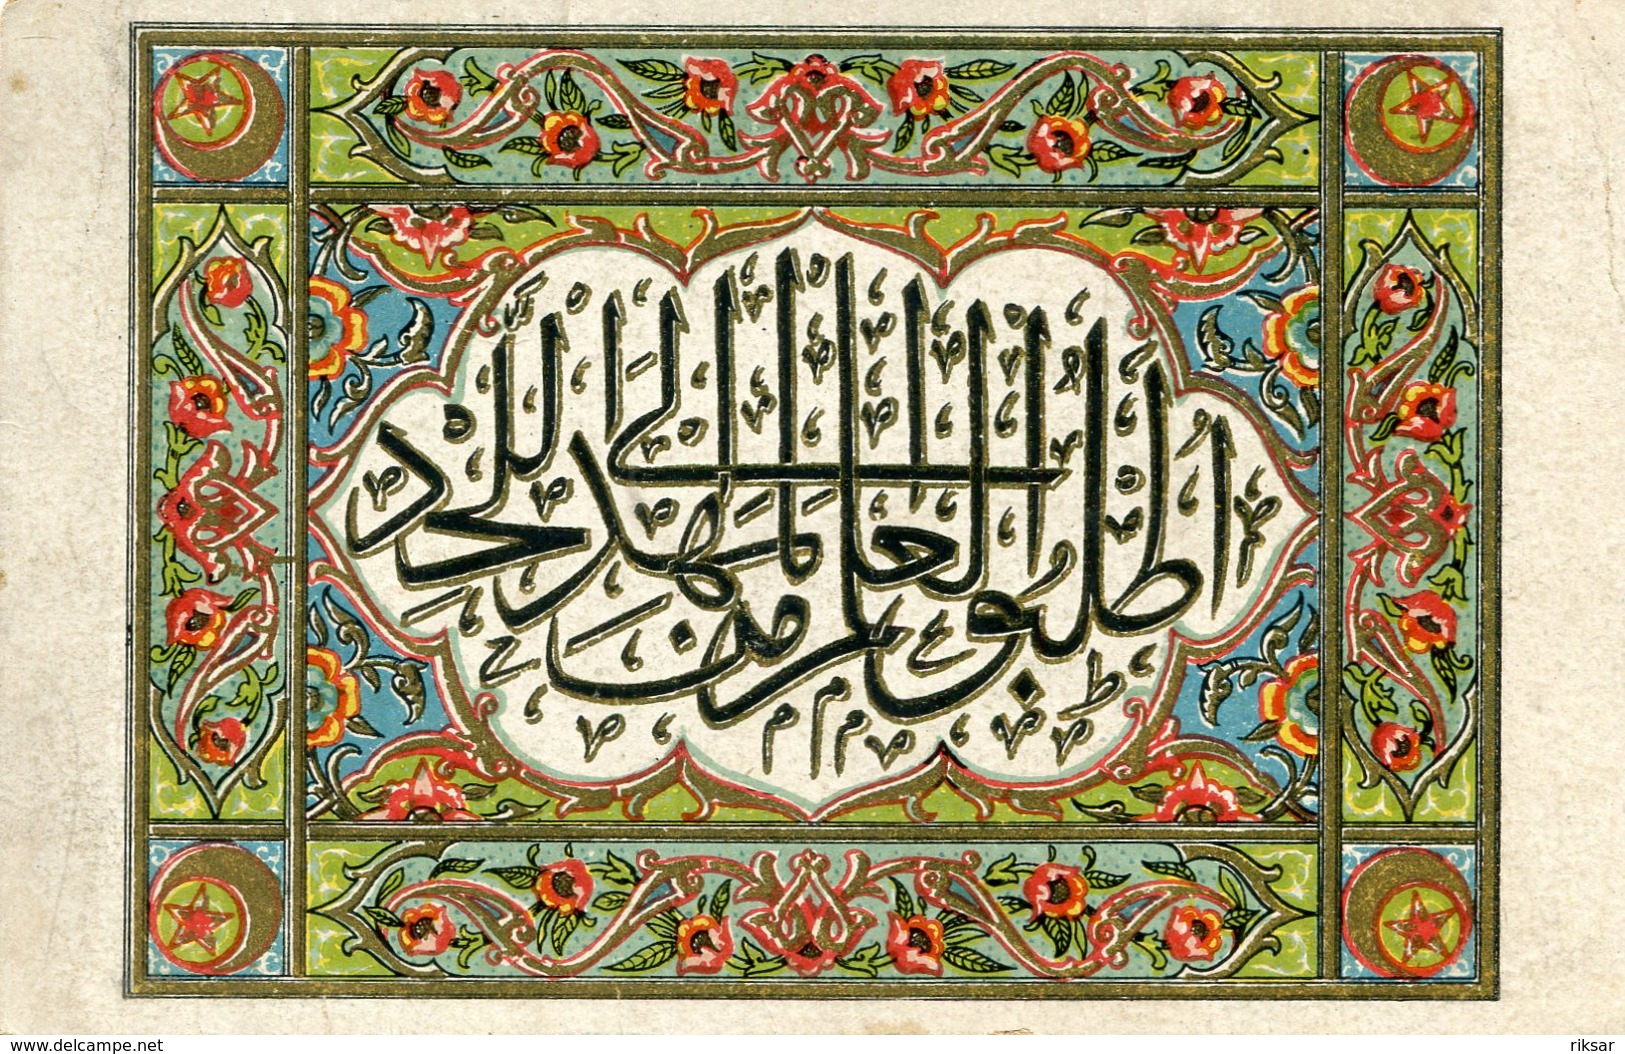 اطلبوا العلم من المهد الى اللحد
www.delcampe.net
riksar